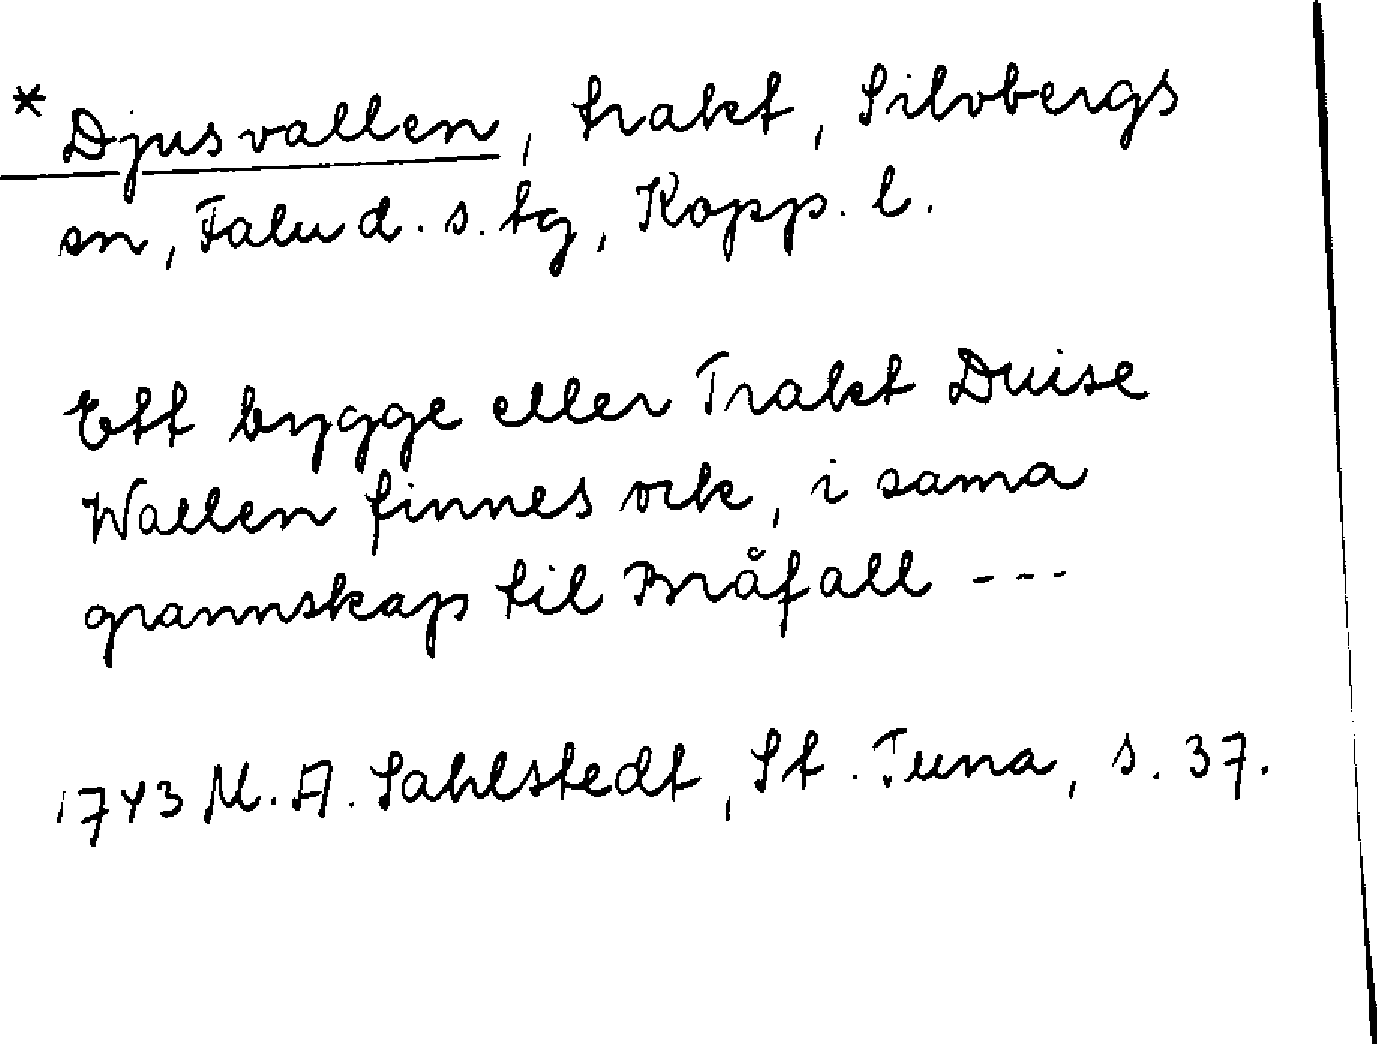 * Djusvallen, trakt, Silvbergs
sn, Falu d. s. tg, Kopp. l.
Ett bygge eller Trakt Duise
Wallen finnes ock, i sama
grannskap til Bråfall ---
1743 M. A. Sahlstedt, St. Tuna, s. 37.